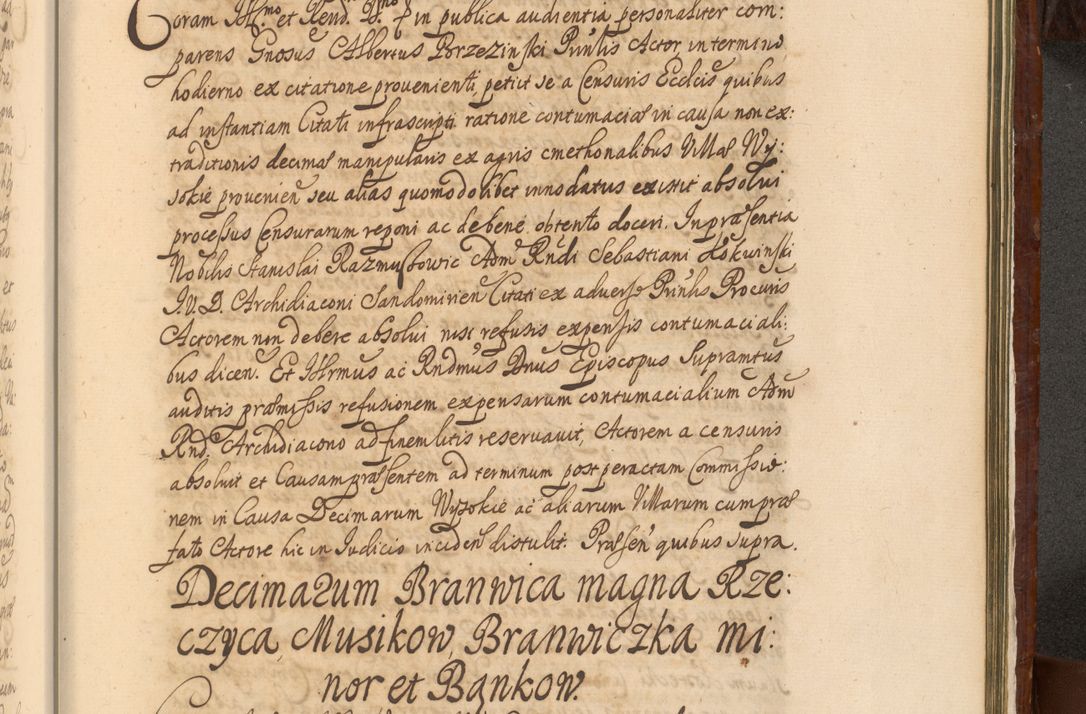 Coram Illmo et Rend. Dno in publica audientia personaliter com:
parens Gnosus Albertus Brzezinski Prinlis Actor, in termino
hodierno ex citatione provenienti, petiit se a Censuris Ecclcis quibus
ad instantiam Citati infrascripti ratione contumaciæ in causa non ex:
traditionis decimæ manipularis ex agris cmethonalibus Villæ Wy:
sokie provenien seu alias quomodolibet innodatus existit absolvi
processus Censurarum reponi ac de bene obtento doceri. In præsentia
Nobilis Stanislai Razmusowic Adm Rndi Sebastiani Hokwinski
I.V.D. Archidiaconi Sandomirien Citati ex adverso Prinlis Procuris
Actorem non debere absolvi nisi refusis expensis contumaciali:
bus dicen. Et Illrmus ac Rndmus Dnus Episcopus Supramtus
auditis præmissis refusionem expensarum contumacialium Adm
Rnd. Archidiacono ad finem litis reservavit, Actorem a censuris
absolvit et Causam præsentem ad terminum post peractam Commissio:
nem in Causa Decimarum Wysokie ac aliarum Villarum cum præ
fato Actore hic in Judicio inciden distulit. Præsen quibus supra.
Decimarum Branwica magna Rze:
czyca, Musikow, Branwiczka mi:
nor et Bąnkow.